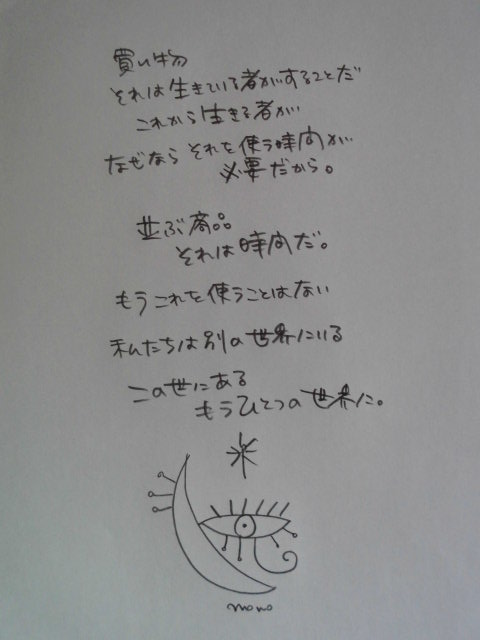 買い物
それは生きている者がすることだ
これから生きる者が
なぜなら それを使う時間が
必要だから。
並ぶ商品
それは時間だ。
もうこれを使うことはない
私たちは別の世界にいる
この世にある
もうひとつの世界に。
momo